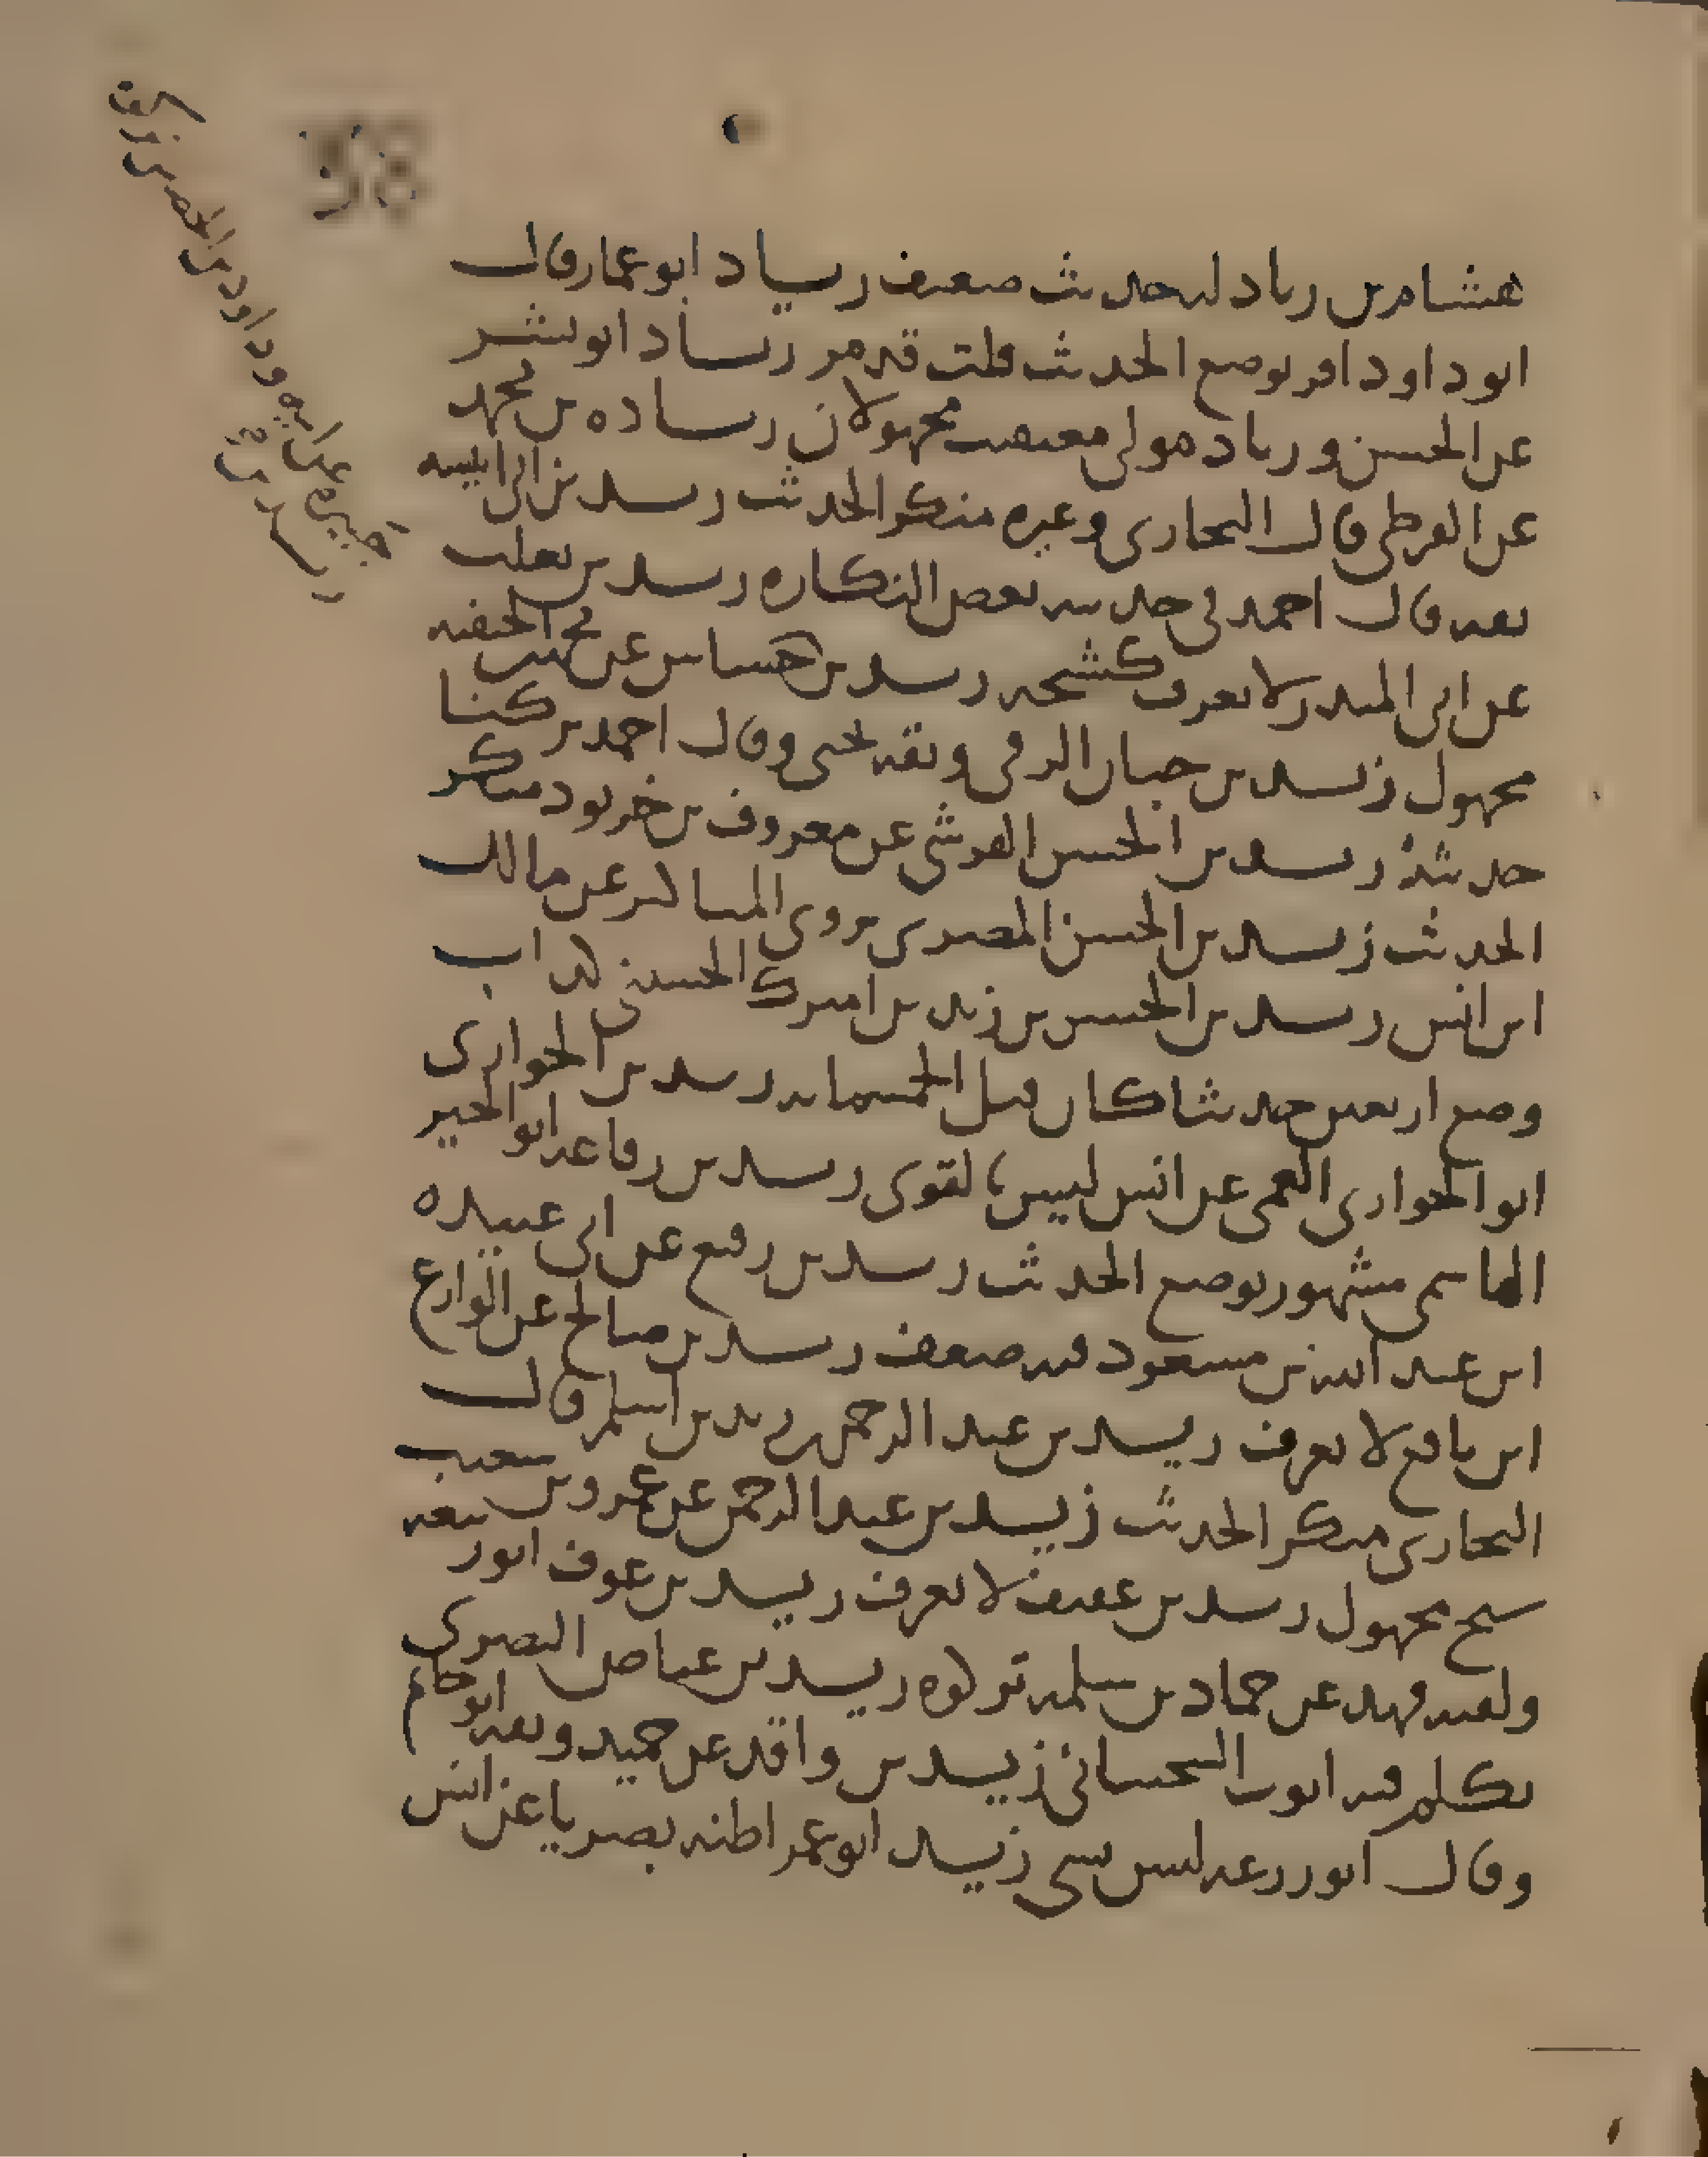 هشام بن زياد له حديث ضعيف زياد ابو عمار قال
ابو داود اقر بوضع الحديث قلت قد مر زياد ابو بشر
عن الحسن وزياد مولى معيقيب مجهولان زيادة بن محمد
عن القرظي قال البخاري وغيره منكر الحديث زيد بن ابي انيسه
ثقه قال احمد في حديثه بعض النكاره زيد بن ثعلب
عن ابي المنذر لا يعرف كشيخه زيد بن عن محمد بن الحنفيه
مجهول زيد بن حبان الرقي وثقه يحيى وقال احمد تركنا
حديثه زيد بن الحسن القرشي عن معروف بن خربوذ منكر
الحديث زيد بن الحسن المصري يروي المناكير عن مالك
ابن انس زيد بن الحسن بن زيد بن اميرك الحسيني كذاب
وضع اربعين حديثا كان قبل الخمسمايه زيد بن الحواري
ابو الحواري العمي عن انس ليس بالقوي زيد بن رفاعه ابو الخير
الهاشمي مشهور بوضع الحديث زيد بن رفيع عن ابي عبيده
ابن عبد الله بن مسعود فيه ضعف زيد بن صالح عن الوازع
ابن نافع لا يعرف زيد بن عبد الرحمن بن زيد بن اسلم قال
البخاري منكر الحديث زيد بن عبد الرحمن عن عمرو بن شعيب
شيخ مجهول زيد بن عفيف لا يعرف زيد بن عوف ابو ربيعه
ولقبه فهد عن حماد بن سلمه تركوه زيد بن عياض البصري
تكلم فيه ايوب السختياني زيد بن واقد عن حميد وثقه ابو حاتم
وقال ابو زرعه ليس بشي زيد ابو عمر اظنه بصريا عن انس